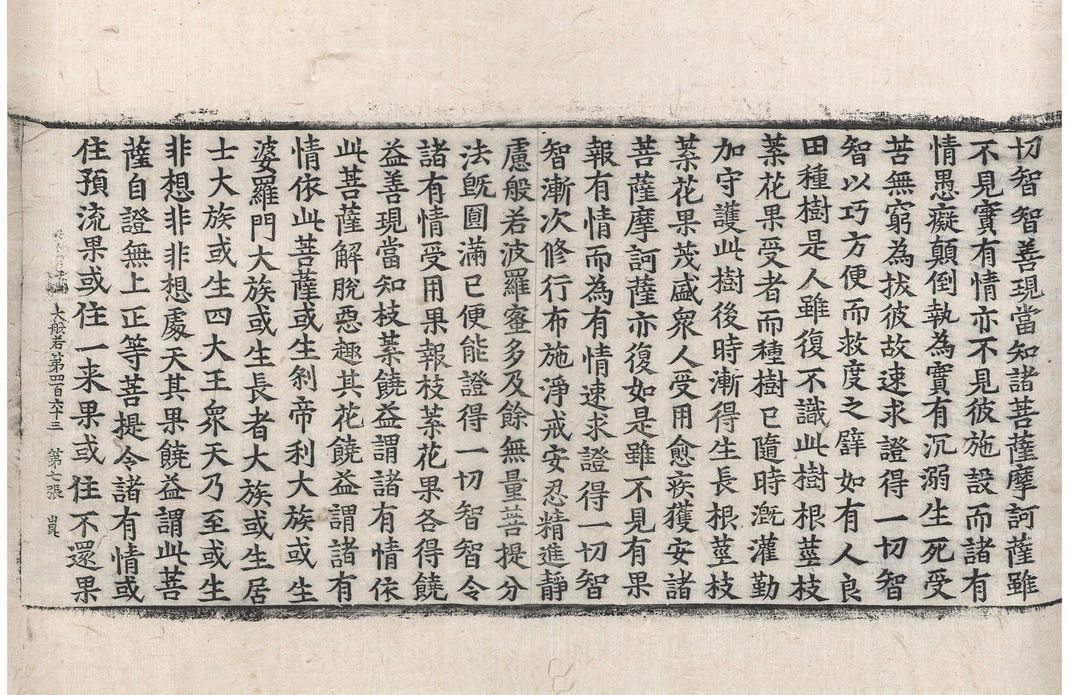 切智智善現當知諸菩薩摩訶薩雖
不見實有情亦不見彼施設而諸有
情愚癡顛倒執為實有沉溺生死受
苦無窮為拔彼故速求證得一切智
智以巧方便而救度之譬如有人良
田種樹是人雖復不識此樹根莖枝
葉花果受者而種樹已隨時溉灌勤
加守護此樹後時漸得生長根莖枝
葉花果茂盛衆人受用愈疾獲安諸
菩薩摩訶薩亦復如是雖不見有果
報有情而為有情速求證得一切智
智漸次修行布施淨戒安忍精進靜
慮般若波羅蜜多及餘無量菩提分
法旣圓滿已便能證得一切智智令
諸有情受用果報枝葉花果各得饒
益善現當知枝葉饒益謂諸有情依
此菩薩解脫惡趣其花饒益謂諸有
情依此菩薩或生刹帝利大族或生
婆羅門大族或生長者大族或生居
士大族或生四大王衆天乃至或生
非想非非想處天其果饒益謂此菩
薩自證無上正等菩提令諸有情或
住預流果或住一来果或住不還果
大般若第四百六十三　第七張　崑